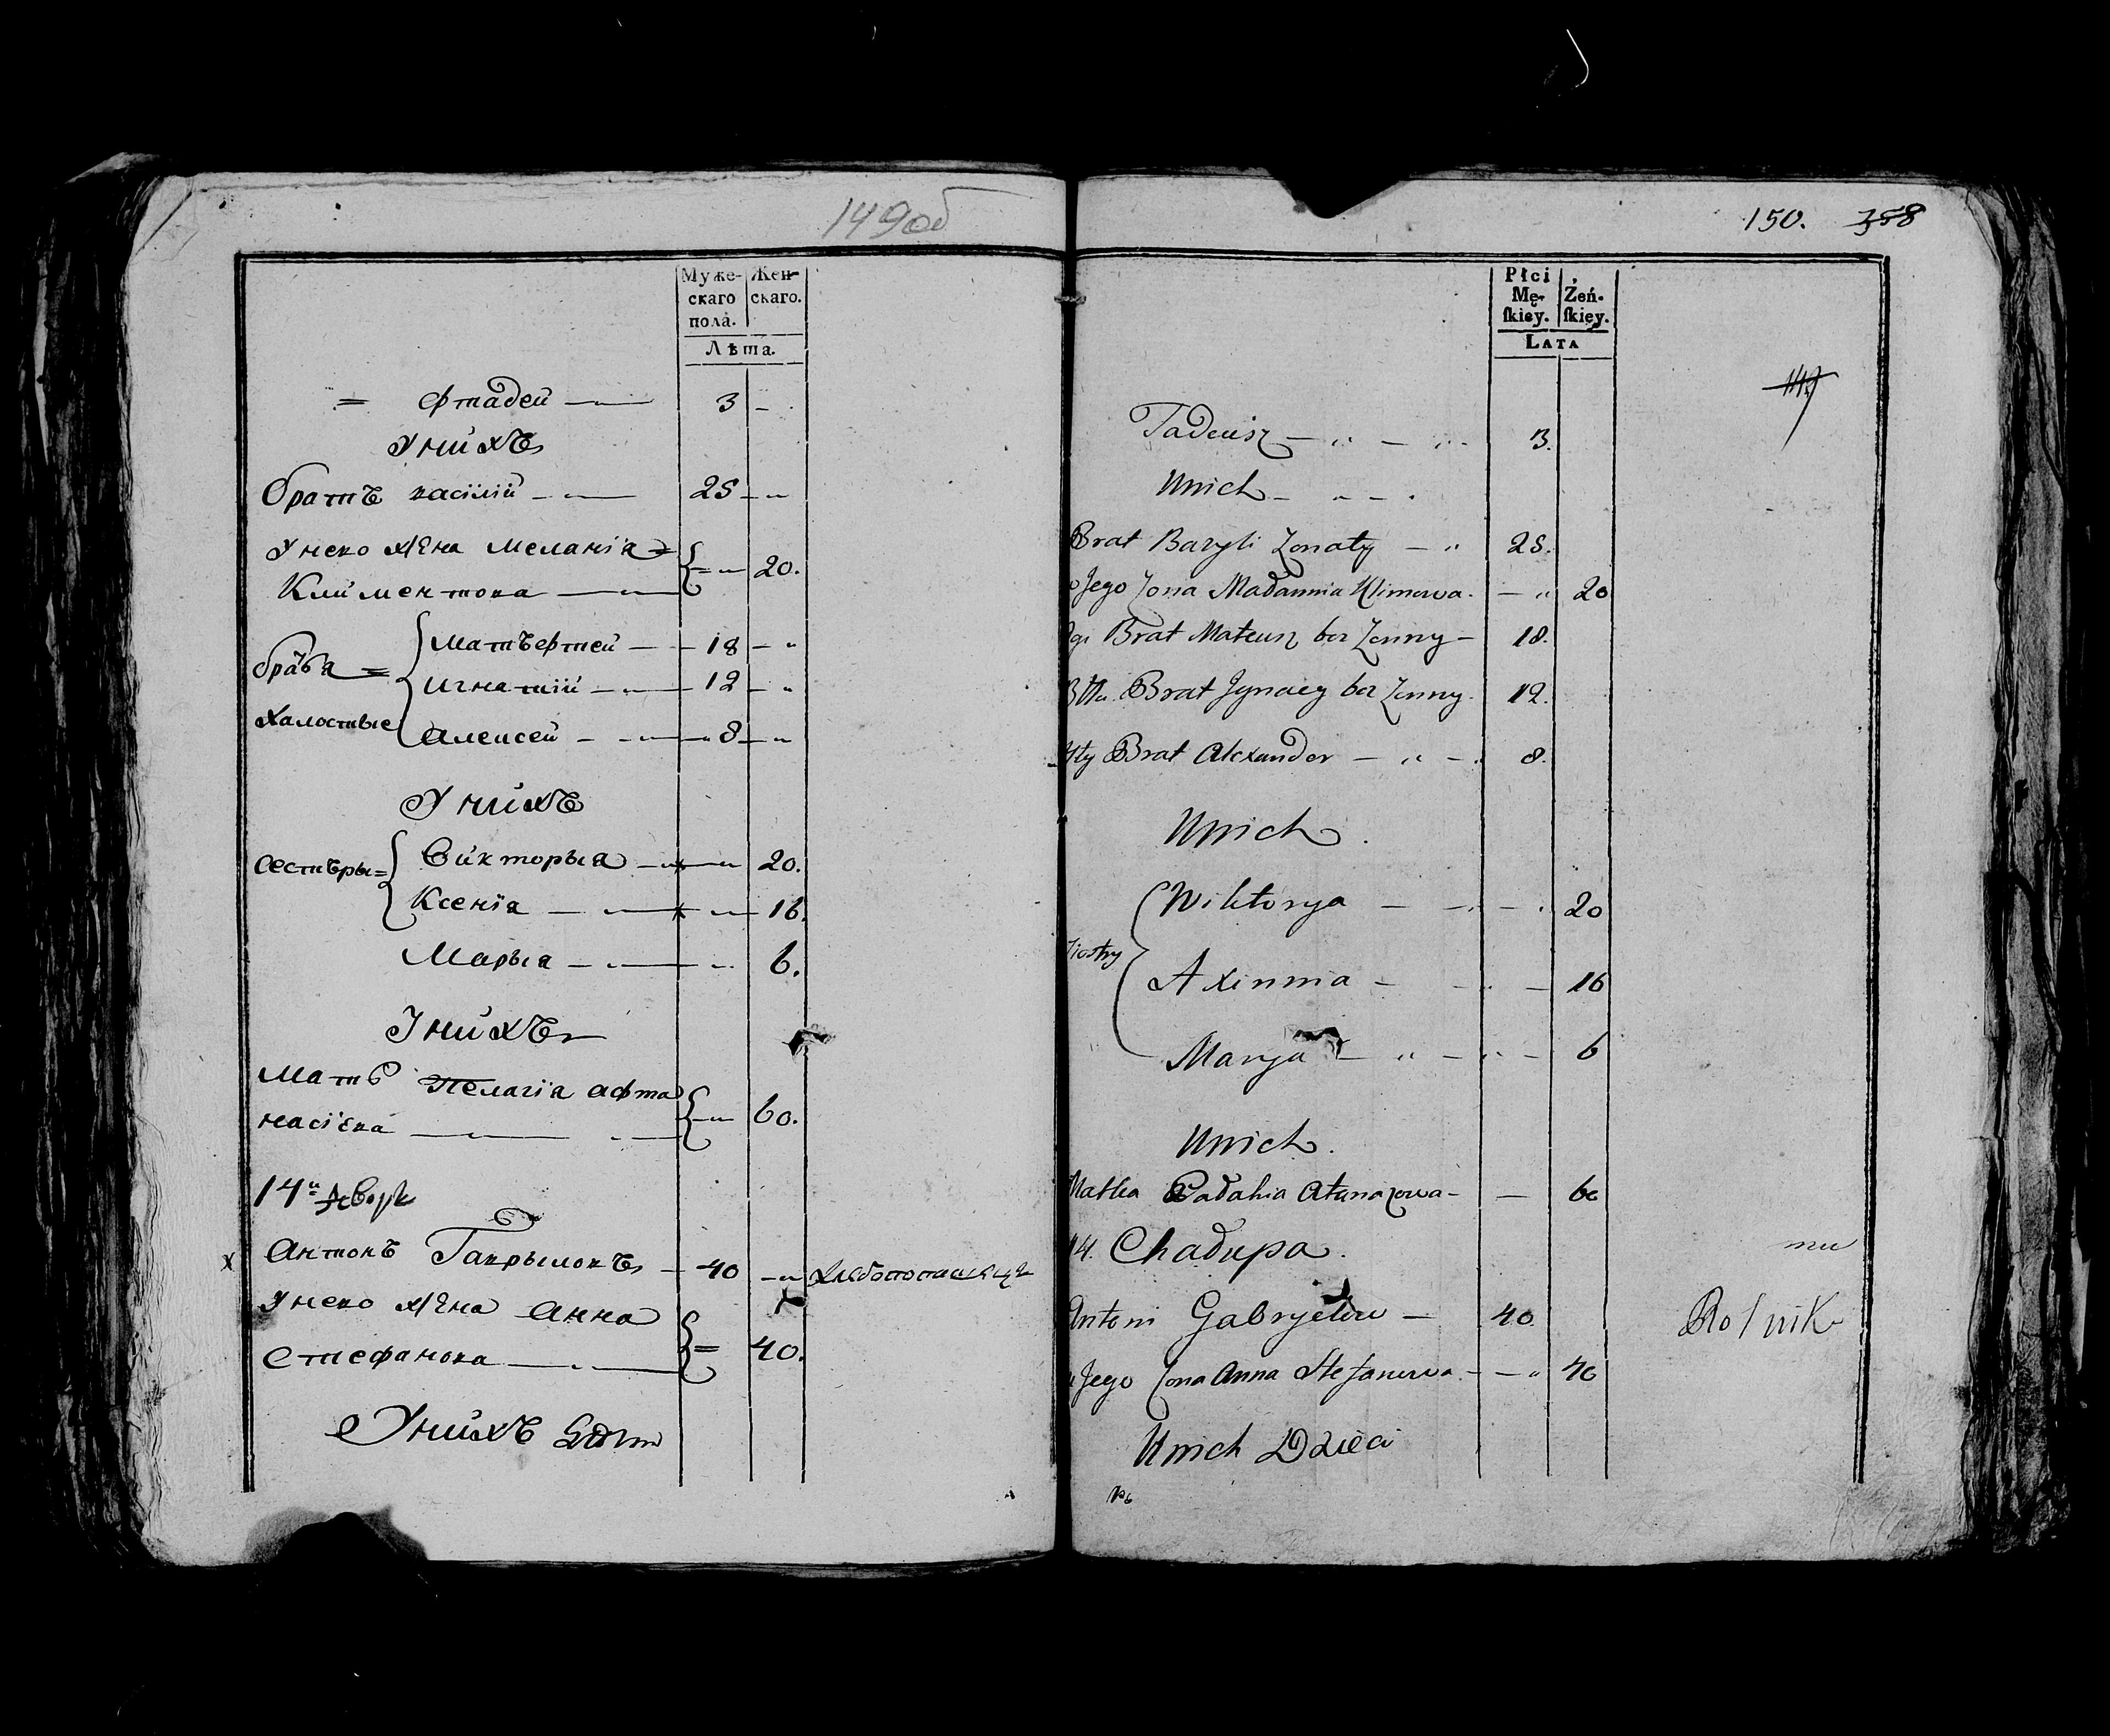 149об
Муже-
скаго
пола.
Жен-
скаго.
Лѣта.
= Фтадей — 3 —
У нихъ
братъ касiлiй — 25 — "
У неко жена Меланiя =
Климентова — 20.
браѣа =
халостые
Матъефтей — 18 — "
Игнатiй — 12 — "
Алексей — 8 — "
У нихъ
сестъры =
Викторыя — 20.
Ксенiя — 16.
Марыя — 6.
У нихъ
Мать Пелагiя афта
насiева — 60.
14й дворъ
х Антонъ Гаврылокъ — 40 — "
У неко жена Анна
Стефанова — 40.
У нихъ
150. 358
Płci
Mę-
ſkiey.
Żeń-
ſkiey.
LATA
Tadeusz — " — 3.
U nich — " — .
Brat Bazyli Zonaty — " 25.
Jego Zona Madannia Klimowa. — " 20
Brat Mateusz bez Zenny — 18.
Brat Jgnacy bez Zenny. 12.
Brat Alexander — " — . 8.
U nich.
Siostry
Wiktorya — 20
Axinnia — 16
Marya — " — 6
U nich.
Matka Padahia Atanazowa — — 60
14. Chadupa.
Antoni Gabryelow — 40.
Rolnik
Jego Zona Anna Stefanowa. — — " 40
U nich Dzieci